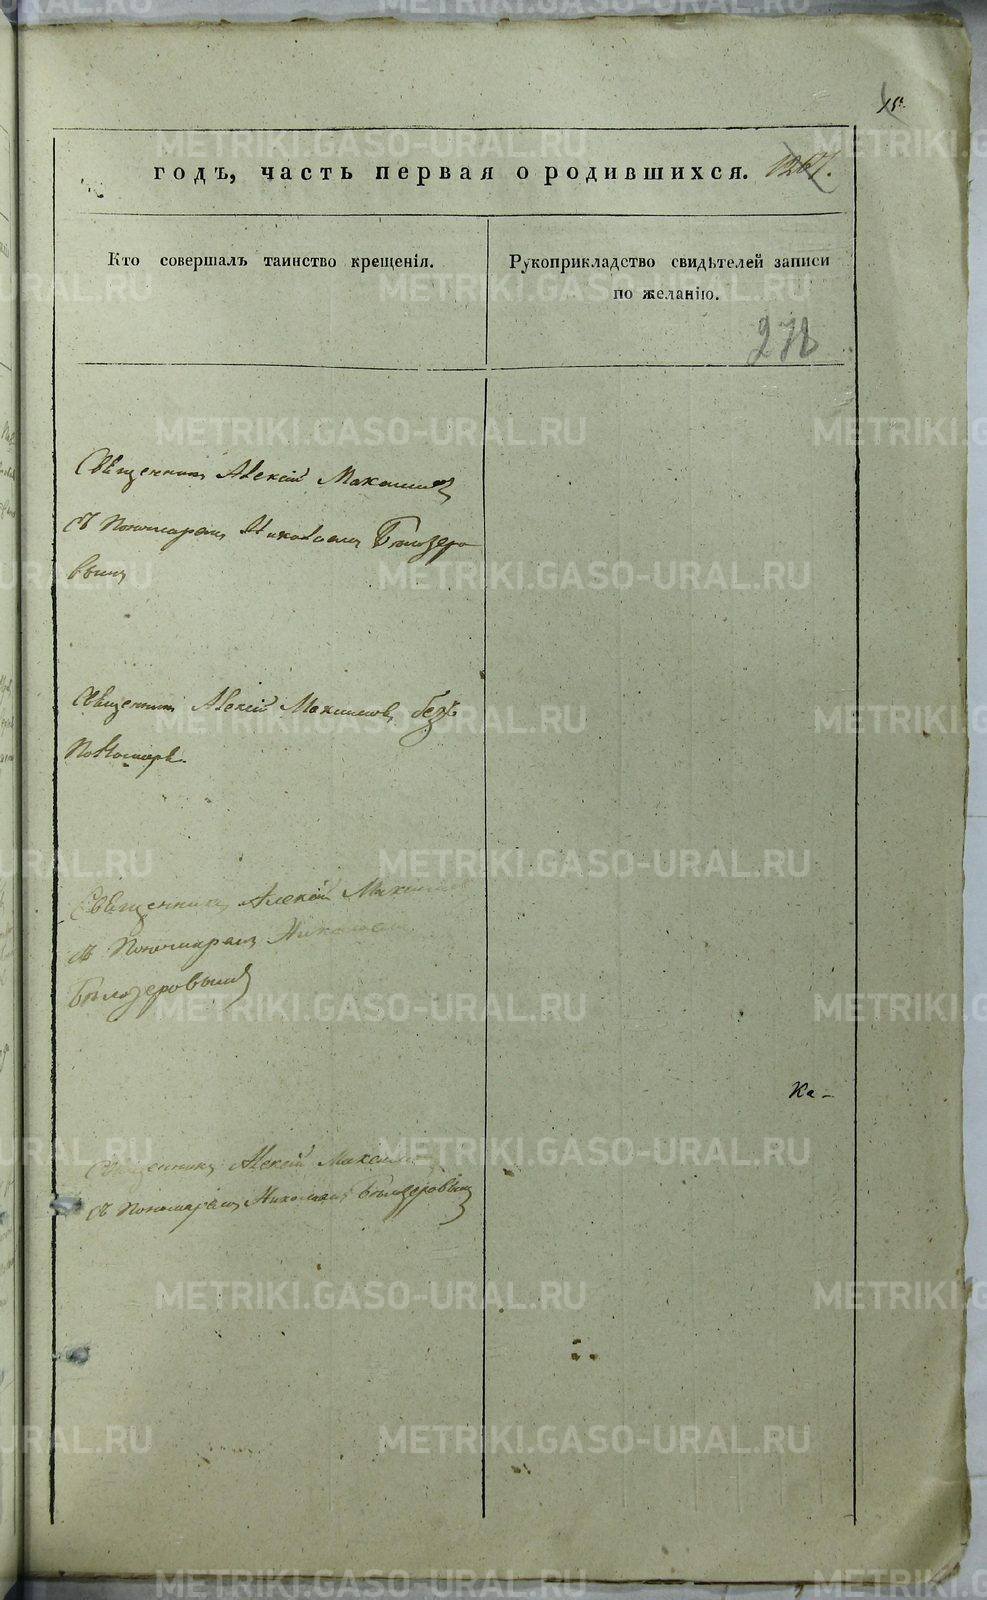 годъ, часть первая о родившихся. 1267.
Кто совершалъ таинство крещенія.
Рукоприкладство свидѣтелей записи
по желанію.
278
Священникъ Алексій Максимовъ
съ Пономаремъ Николаемъ Бѣлозеро
вымъ
Священникъ Алексій Максимовъ безъ
Пономаря.
Священникъ Алексій Максимовъ
съ Пономаремъ Николаемъ
Бѣлозеровымъ
Ка-
Священникъ Алексій Максимовъ
съ Пономаремъ Николаемъ Бѣлозеровымъ
METRIKI.GASO-URAL.RU